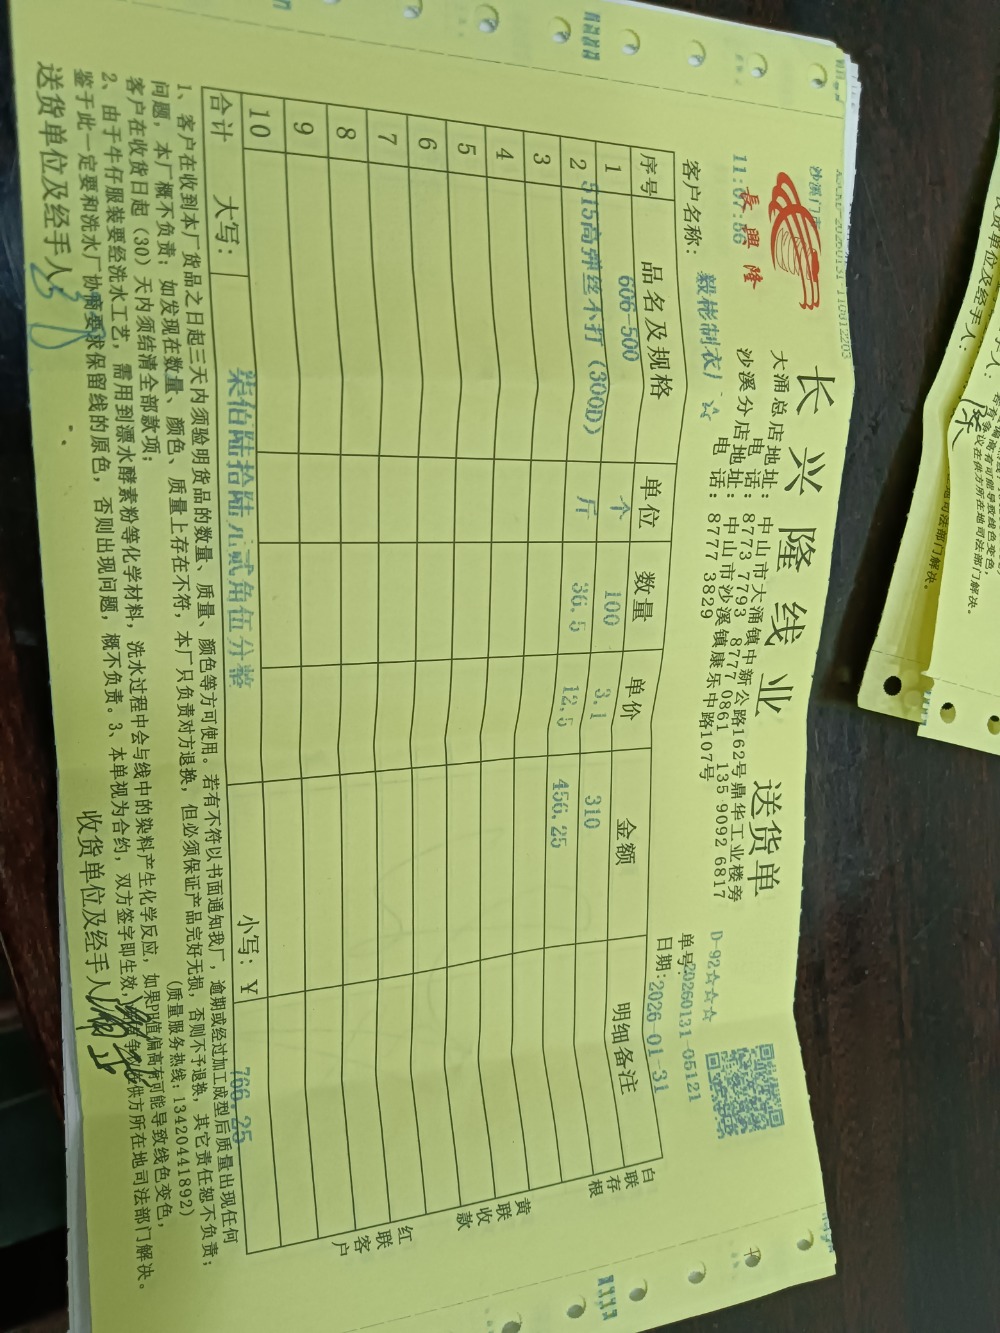 长兴隆线业 送货单
長興隆
沙溪门市
11:07:56
大涌总店地址:中山市大涌镇中新公路162号鼎华工业楼旁
电 话:8773 7793 8777 0861 135 9092 6817
沙溪分店地址:中山市沙溪镇康乐中路107号
电 话:8777 3829
D-92☆☆☆
单号:20260131-05121
客户名称: 毅彬制衣厂 ☆
日期:2026-01-31
序号 品名及规格 单位 数量 单价 金额 明细备注
1 606-500 个 100 3.1 310
2 515高弹丝不打(300D) 斤 36.5 12.5 456.25
3
4
5
6
7
8
9
10
合计 大写: 柒佰陆拾陆元贰角伍分整 小写:¥ 766.25
白联存根
黄联收款
红联客户
1、客户在收到本厂货品之日起三天内须验明货品的数量、质量、颜色等方可使用。若有不符以书面通知我厂,逾期或经过加工成型后质量出现任何
问题,本厂概不负责;如发现在数量、颜色、质量上存在不符,本厂只负责对方退换,但必须保证产品完好无损,否则不予退换,其它责任恕不负责;
客户在收货日起(30)天内须结清全部款项; (质量服务热线:13420441892)
2、由于牛仔服装要经洗水工艺,需用到漂水酵素粉等化学材料,洗水过程中会与线中的染料产生化学反应,如果PH值偏高有可能导致线色变色,
鉴于此一定要和洗水厂协商要求保留线的原色,否则出现问题,概不负责。3、本单视为合约,双方签字即生效,供方所在地司法部门解决。
送货单位及经手人: 收货单位及经手人: